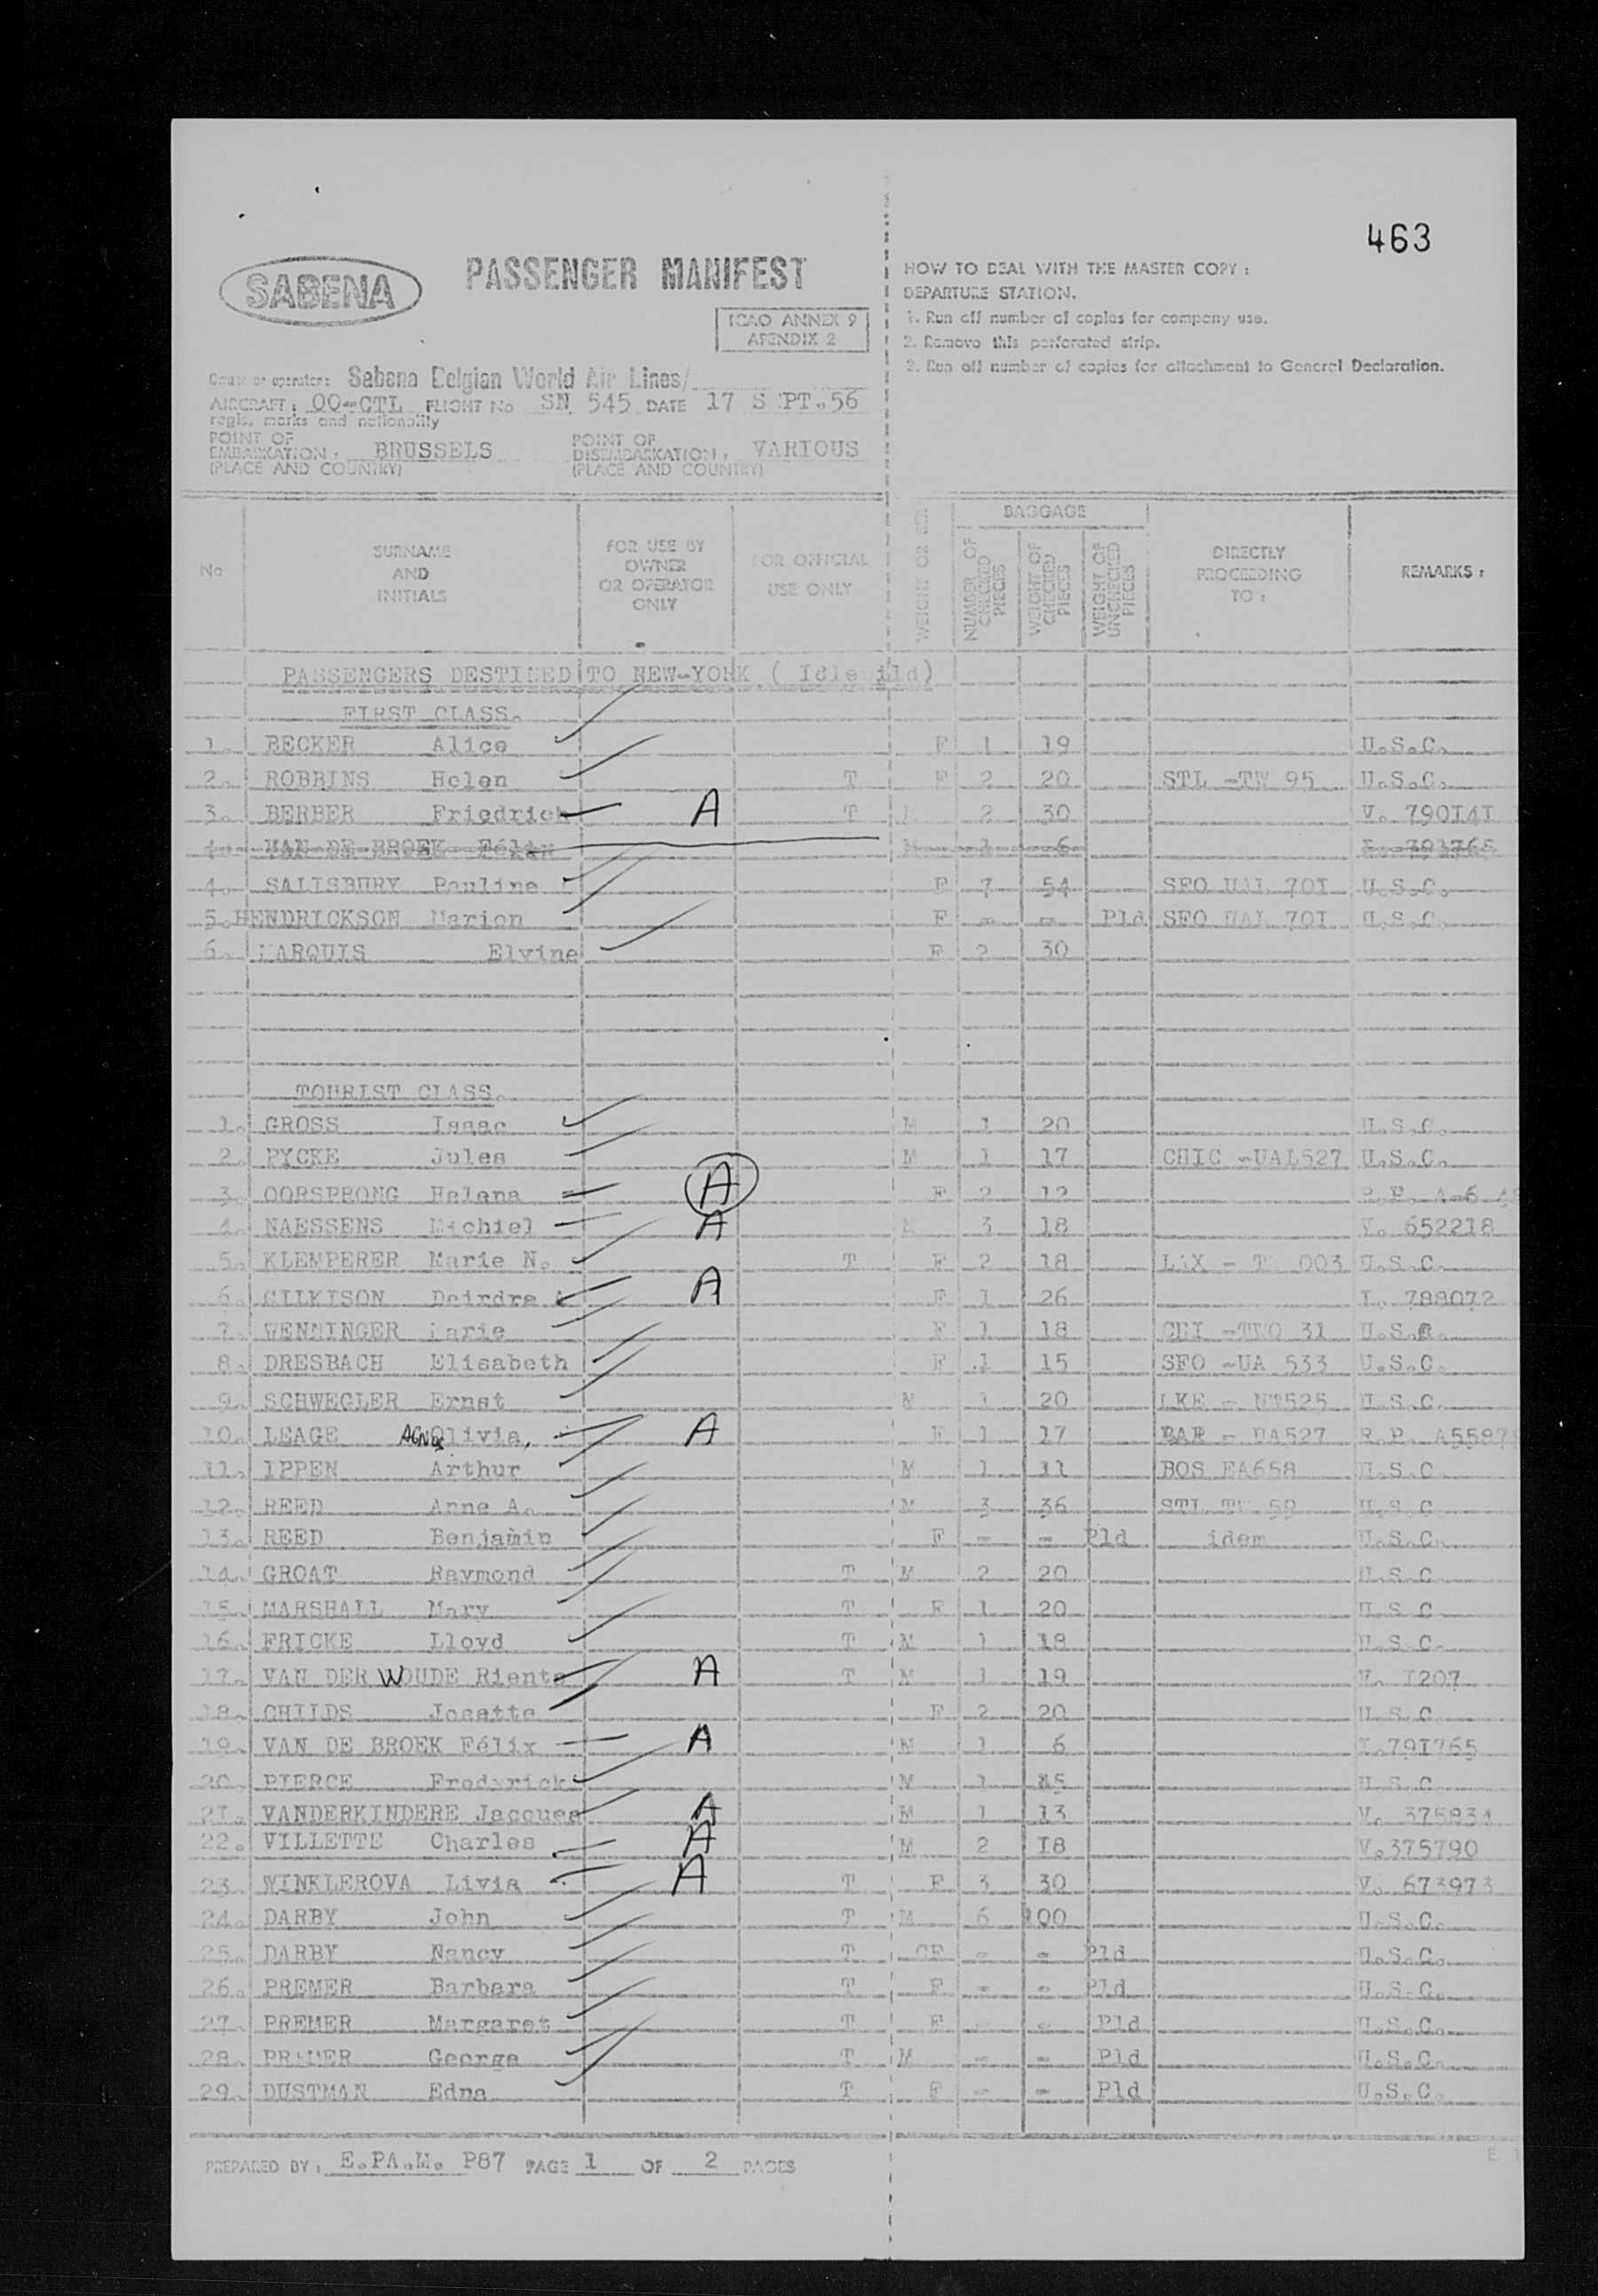 463
SABENA
PASSENGER MANIFEST
ICAO ANNEX 9
APENDIX 2
HOW TO DEAL WITH THE MASTER COPY :
DEPARTURE STATION.
1. Run off number of copies for company use.
2. Remove this perforated strip.
3. Run off number of copies for attachment to General Declaration.
Owner or operator: Sabena Belgian World Air Lines/
AIRCRAFT : OO-CTL FLIGHT No SN 545 DATE 17 S PT.56
regis. marks and nationality
POINT OF EMBARKATION : BRUSSELS (PLACE AND COUNTRY)
POINT OF DISEMBARKATION : VARIOUS (PLACE AND COUNTRY)
No
SURNAME AND INITIALS
FOR USE BY OWNER OR OPERATOR ONLY
FOR OFFICIAL USE ONLY
WEIGHT OR SEX
BAGGAGE
NUMBER OF CHECKED PIECES
WEIGHT OF CHECKED PIECES
WEIGHT OF UNCHECKED PIECES
DIRECTLY PROCEEDING TO :
REMARKS :
PASSENGERS DESTINED TO NEW-YORK ( Idle ild)
FIRST CLASS.
1. BECKER Alice F 1 19 U.S.C.
2. ROBBINS Helen T F 2 20 STL -TW 95 U.S.C.
3. BERBER Friedrich A T M 2 30 V. 790I4I
4. VAN DE BROEK Félix M 1 6 791765
4. SALISBURY Pauline F 7 54 SFO UAL 70I U.S.C.
5. HENDRICKSON Marion F - - Pld SFO UAL 70I U.S.C.
6. MARQUIS Elvine F 2 30
TOURIST CLASS.
1. GROSS Isaac M 1 20 U.S.C.
2. PYCKE Jules M 1 17 CHIC -UAL527 U.S.C.
3. OORSPRONG Helena A F 2 12 R.P. A-6
4. NAESSENS Michiel A M 3 18 V. 652218
5. KLEMPERER Marie N. T F 2 18 LAX - T 003 U.S.C.
6. GILKISON Deirdre A A F 1 26 I. 788072
7. WENNINGER Marie F 1 18 CHI -TWO 31 U.S.C.
8. DRESBACH Elisabeth F 1 15 SFO -UA 533 U.S.C.
9. SCHWEGLER Ernst M 1 20 LKE - NT525 U.S.C.
10. LEAGE AGNES Olivia, A F 1 17 BAR - UA527 R.P. A5587
11. IPPEN Arthur M 1 11 BOS EA658 U.S.C.
12. REED Anne A. M 3 36 STL TW 59 U.S.C
13. REED Benjamin F - - Pld idem U.S.C.
14. GROAT Raymond T M 2 20 U.S.C
15. MARSHALL Mary T F 1 20 U.S.C
16. FRICKE Lloyd T M 1 18 U.S.C.
17. VAN DER WOUDE Rients A T M 1 19 V. I207
18. CHILDS Josette F 2 20 U.S.C
19. VAN DE BROEK Félix A M 1 6 I.79I765
20. PIERCE Frederick M 1 U.S.C
2I. VANDERKINDERE Jacques A M 1 13 V. 375834
22. VILLETTE Charles A M 2 I8 V.375790
23. WINKLEROVA Livia A T F 3 30 V. 673973
24. DARBY John T M 6 100 U.S.C.
25. DARBY Nancy T CF - - Pld U.S.C.
26. PREMER Barbara T F - - Pld U.S.C.
27. PREMER Margaret T F - - Pld U.S.C.
28. PREMER George T M - - Pld U.S.C.
29. DUSTMAN Edna T F - - Pld U.S.C.
PREPARED BY : E.PA.M. P87 PAGE 1 OF 2 PAGES